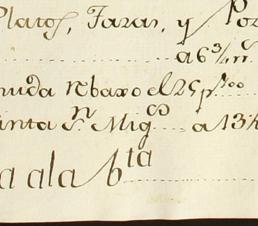 Platos, Tazas, y Poz
a 6 3/4 rs.
nuda rebaxo el 25 p%
anta Sn. Migl a 13 1/2
a ala bta